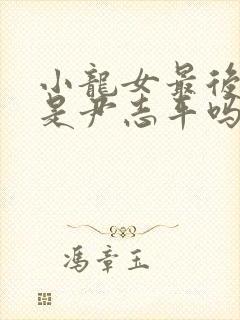 小龍女最後
是尹志平嗎
馮章玉